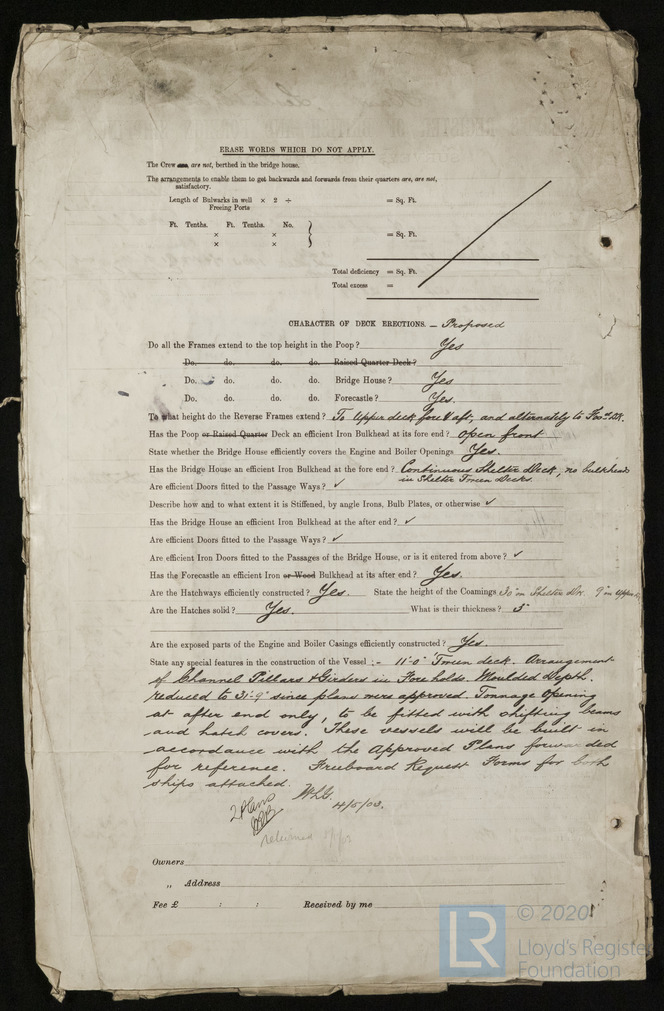 ERASE WORDS WHICH DO NOT APPLY.
The Crew are, are not, berthed in the bridge house.
The arrangements to enable them to get backwards and forwards from their quarters are, are not,
satisfactory.
Length of Bulwarks in well × 2 ÷ = Sq. Ft.
Freeing Ports
Ft. Tenths. Ft. Tenths. No.
× × = Sq. Ft.
× ×
Total deficiency = Sq. Ft.
Total excess =
CHARACTER OF DECK ERECTIONS. — Proposed
Do all the Frames extend to the top height in the Poop? Yes
Do. do. do. do. Raised Quarter Deck?
Do. do. do. do. Bridge House? Yes
Do. do. do. do. Forecastle? Yes.
To what height do the Reverse Frames extend? To Upper deck fore & aft, and alternately to Foc'sle Dk.
Has the Poop or Raised Quarter Deck an efficient Iron Bulkhead at its fore end? open front
State whether the Bridge House efficiently covers the Engine and Boiler Openings Yes.
Has the Bridge House an efficient Iron Bulkhead at the fore end? Continuous Shelter Deck, no bulkhead
in Shelter 'Tween Decks.
Are efficient Doors fitted to the Passage Ways? ✓
Describe how and to what extent it is Stiffened, by angle Irons, Bulb Plates, or otherwise ✓
Has the Bridge House an efficient Iron Bulkhead at the after end? ✓
Are efficient Doors fitted to the Passage Ways? ✓
Are efficient Iron Doors fitted to the Passages of the Bridge House, or is it entered from above? ✓
Has the Forecastle an efficient Iron or Wood Bulkhead at its after end? Yes.
Are the Hatchways efficiently constructed? Yes. State the height of the Coamings 30" on Shelter Dk. 9" on Upper
Are the Hatches solid? Yes. What is their thickness? 3"
Are the exposed parts of the Engine and Boiler Casings efficiently constructed? Yes.
State any special features in the construction of the Vessel :- 11'-0" 'Tween deck. Arrangement
of Channel Pillars & Girders in Fore holds. Moulded Depth.
reduced to 31'-9" since plans were approved. Tonnage Opening
at after end only, to be fitted with shifting beams
and hatch covers. These vessels will be built in
accordance with the Approved Plans forwarded
for reference. Freeboard Request Forms for both
ships attached.
4/5/03.
2 Plans
returned
Owners
" Address
Fee £ : : Received by me
LR
© 2020
Lloyd's Register
Foundation